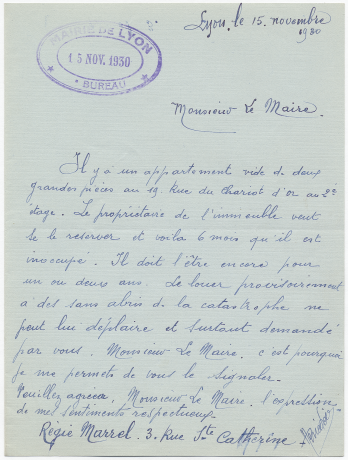 Lyon, le 15 novembre
1930
MAIRIE DE LYON
15 NOV. 1930
BUREAU
Monsieur Le Maire.
Il y a un appartement vide de deux
grandes pièces au 19 Rue du Chariot d'or au 2e
étage. Le propriétaire de l'immeuble veut
se le reserver et voila 6 mois qu'il est
inoccupé. Il doit l'être encore pour
un ou deux ans. Le louer provisoirement
à des sans abris de la catastrophe ne
peut lui déplaire et surtout demandé
par vous. Monsieur Le Maire. c'est pourquoi
je me permets de vous le signaler.
Veuillez agréer, Monsieur Le Maire, l'expression
de mes sentiments respectueux.
Régie Marrel. 3. Rue Ste Catherine.